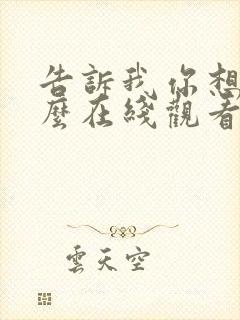 告訴我 你想
麼在綫觀看
雲天空